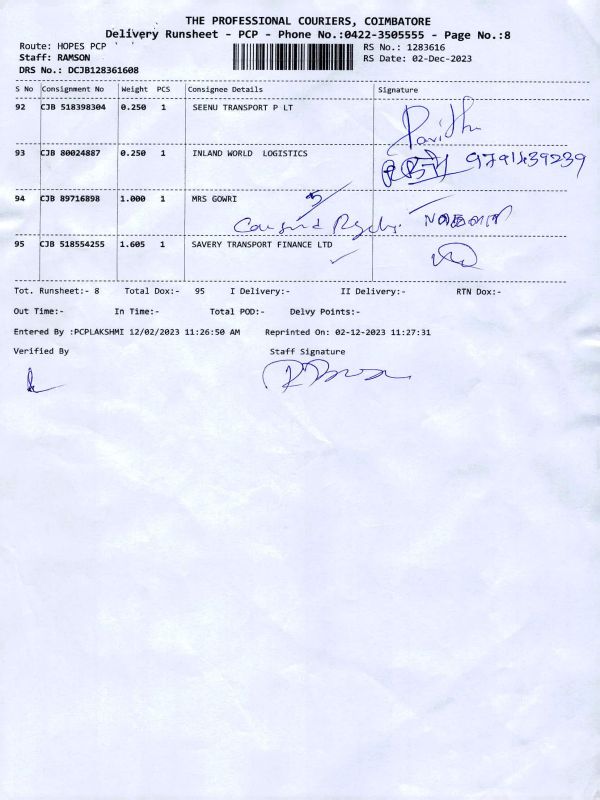 THE PROFESSIONAL COURIERS, COIMBATORE
Delivery Runsheet - PCP - Phone No.:0422-3505555 - Page No.:8
Route: HOPES PCP
RS No.: 1283616
Staff: RAMSON
RS Date: 02-Dec-2023
DRS No.: DCJB128361608
S No Consignment No Weight PCS Consignee Details Signature
92 CJB 518398304 0.250 1 SEENU TRANSPORT P LT
93 CJB 80024887 0.250 1 INLAND WORLD LOGISTICS 9791439239
94 CJB 89716898 1.000 1 MRS GOWRI
95 CJB 518554255 1.605 1 SAVERY TRANSPORT FINANCE LTD
Tot. Runsheet:- 8 Total Dox:- 95 I Delivery:- II Delivery:- RTN Dox:-
Out Time:- In Time:- Total POD:- Delvy Points:-
Entered By :PCPLAKSHMI 12/02/2023 11:26:50 AM Reprinted On: 02-12-2023 11:27:31
Verified By Staff Signature